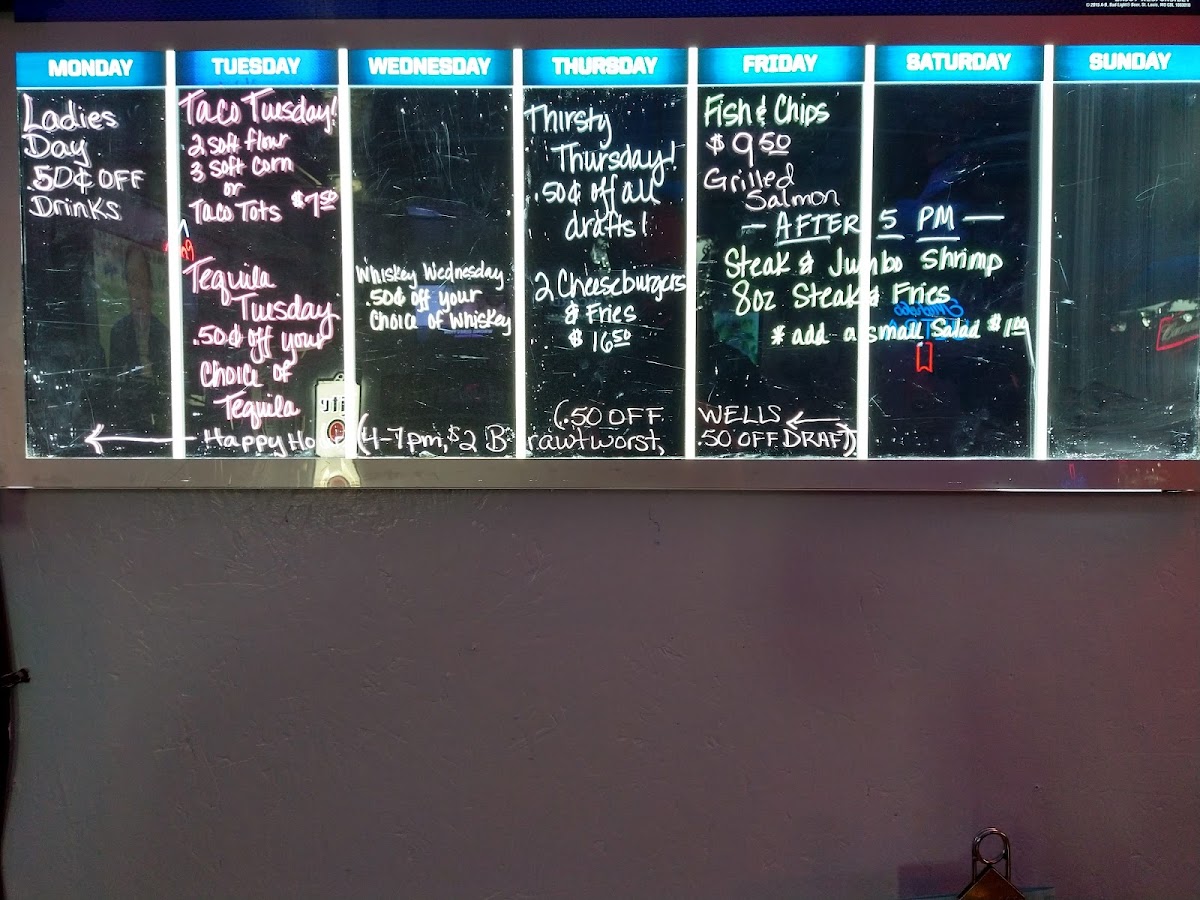 MONDAY
Ladies
Day
.50¢ OFF
Drinks
TUESDAY
Taco Tuesday!
2 soft flour
3 soft corn
or
Taco Tots $7.50
Tequila
Tuesday
.50¢ off your
Choice of
Tequila
WEDNESDAY
Whiskey Wednesday
.50¢ off your
Choice of Whiskey
THURSDAY
Thirsty
Thursday!
.50¢ off all
drafts!
2 Cheeseburgers
& Fries
$16.50
FRIDAY
Fish & Chips
$9.50
Grilled
Salmon
SATURDAY
— AFTER 5 PM —
Steak & Jumbo Shrimp
8oz Steak & Fries
* add a small Salad $1.00
SUNDAY
(.50 OFF WELLS
Happy Ho (4-7pm, $2 Brawtworst, .50 OFF DRAFT)